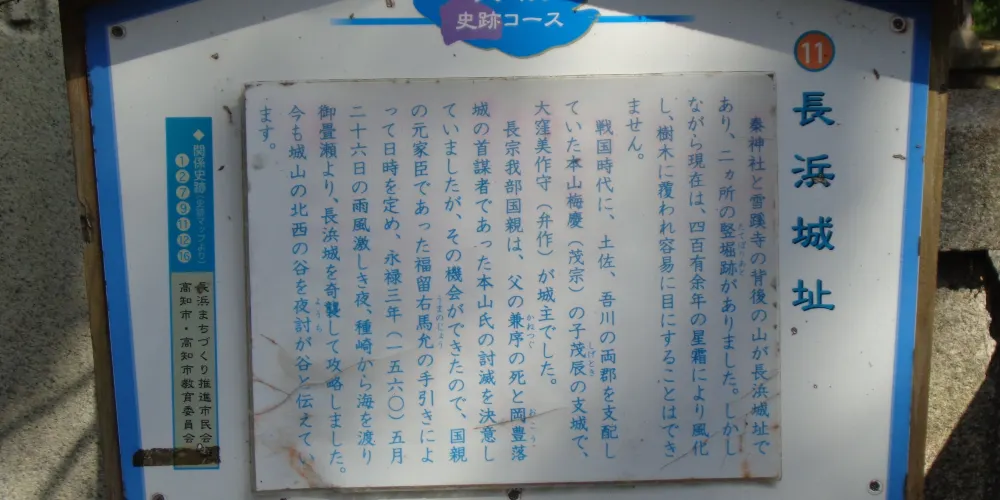 史跡コース
11
長浜城址
秦神社と雪蹊寺の背後の山が長浜城址で
あり、二ヵ所の竪堀跡がありました。しかし
ながら現在は、四百有余年の星霜により風化
し、樹木に覆われ容易に目にすることはでき
ません。
戦国時代に、土佐、吾川の両郡を支配し
ていた本山梅慶（茂宗）の子茂辰の支城で、
大窪美作守（弁作）が城主でした。
長宗我部国親は、父の兼序の死と岡豊落
城の首謀者であった本山氏の討滅を決意し
ていましたが、その機会ができたので、国親
の元家臣であった福留右馬允の手引きによ
って日時を定め、永禄三年（一五六〇）五月
二十六日の雨風激しき夜、種崎から海を渡り
御畳瀬より、長浜城を奇襲して攻略しました。
今も城山の北西の谷を夜討が谷と伝えてい
ます。
◆関係史跡（史跡マップより）
①②⑦⑨⑪⑫⑯
長浜まちづくり推進市民会
高知市・高知市教育委員会